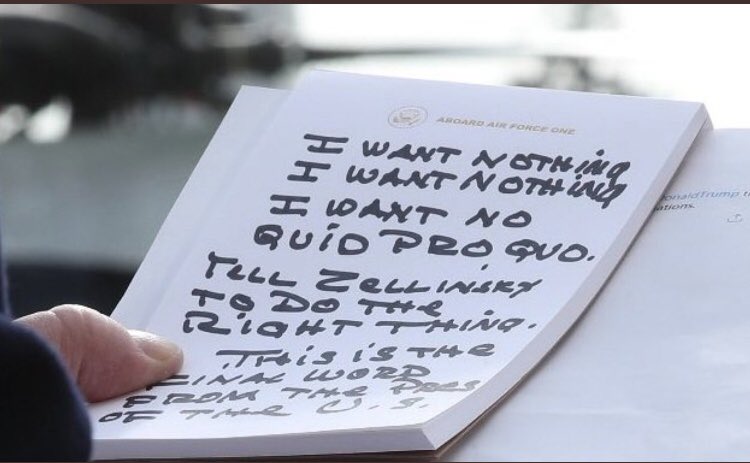 ABOARD AIR FORCE ONE
I WANT NOTHING
I WANT NOTHING
I WANT NO
QUID PRO QUO.
TELL ZELLINSKY
TO DO THE
RIGHT THING.
THIS IS THE
FINAL WORD
FROM THE PRES
OF THE U.S.
onaldTrump
ations.